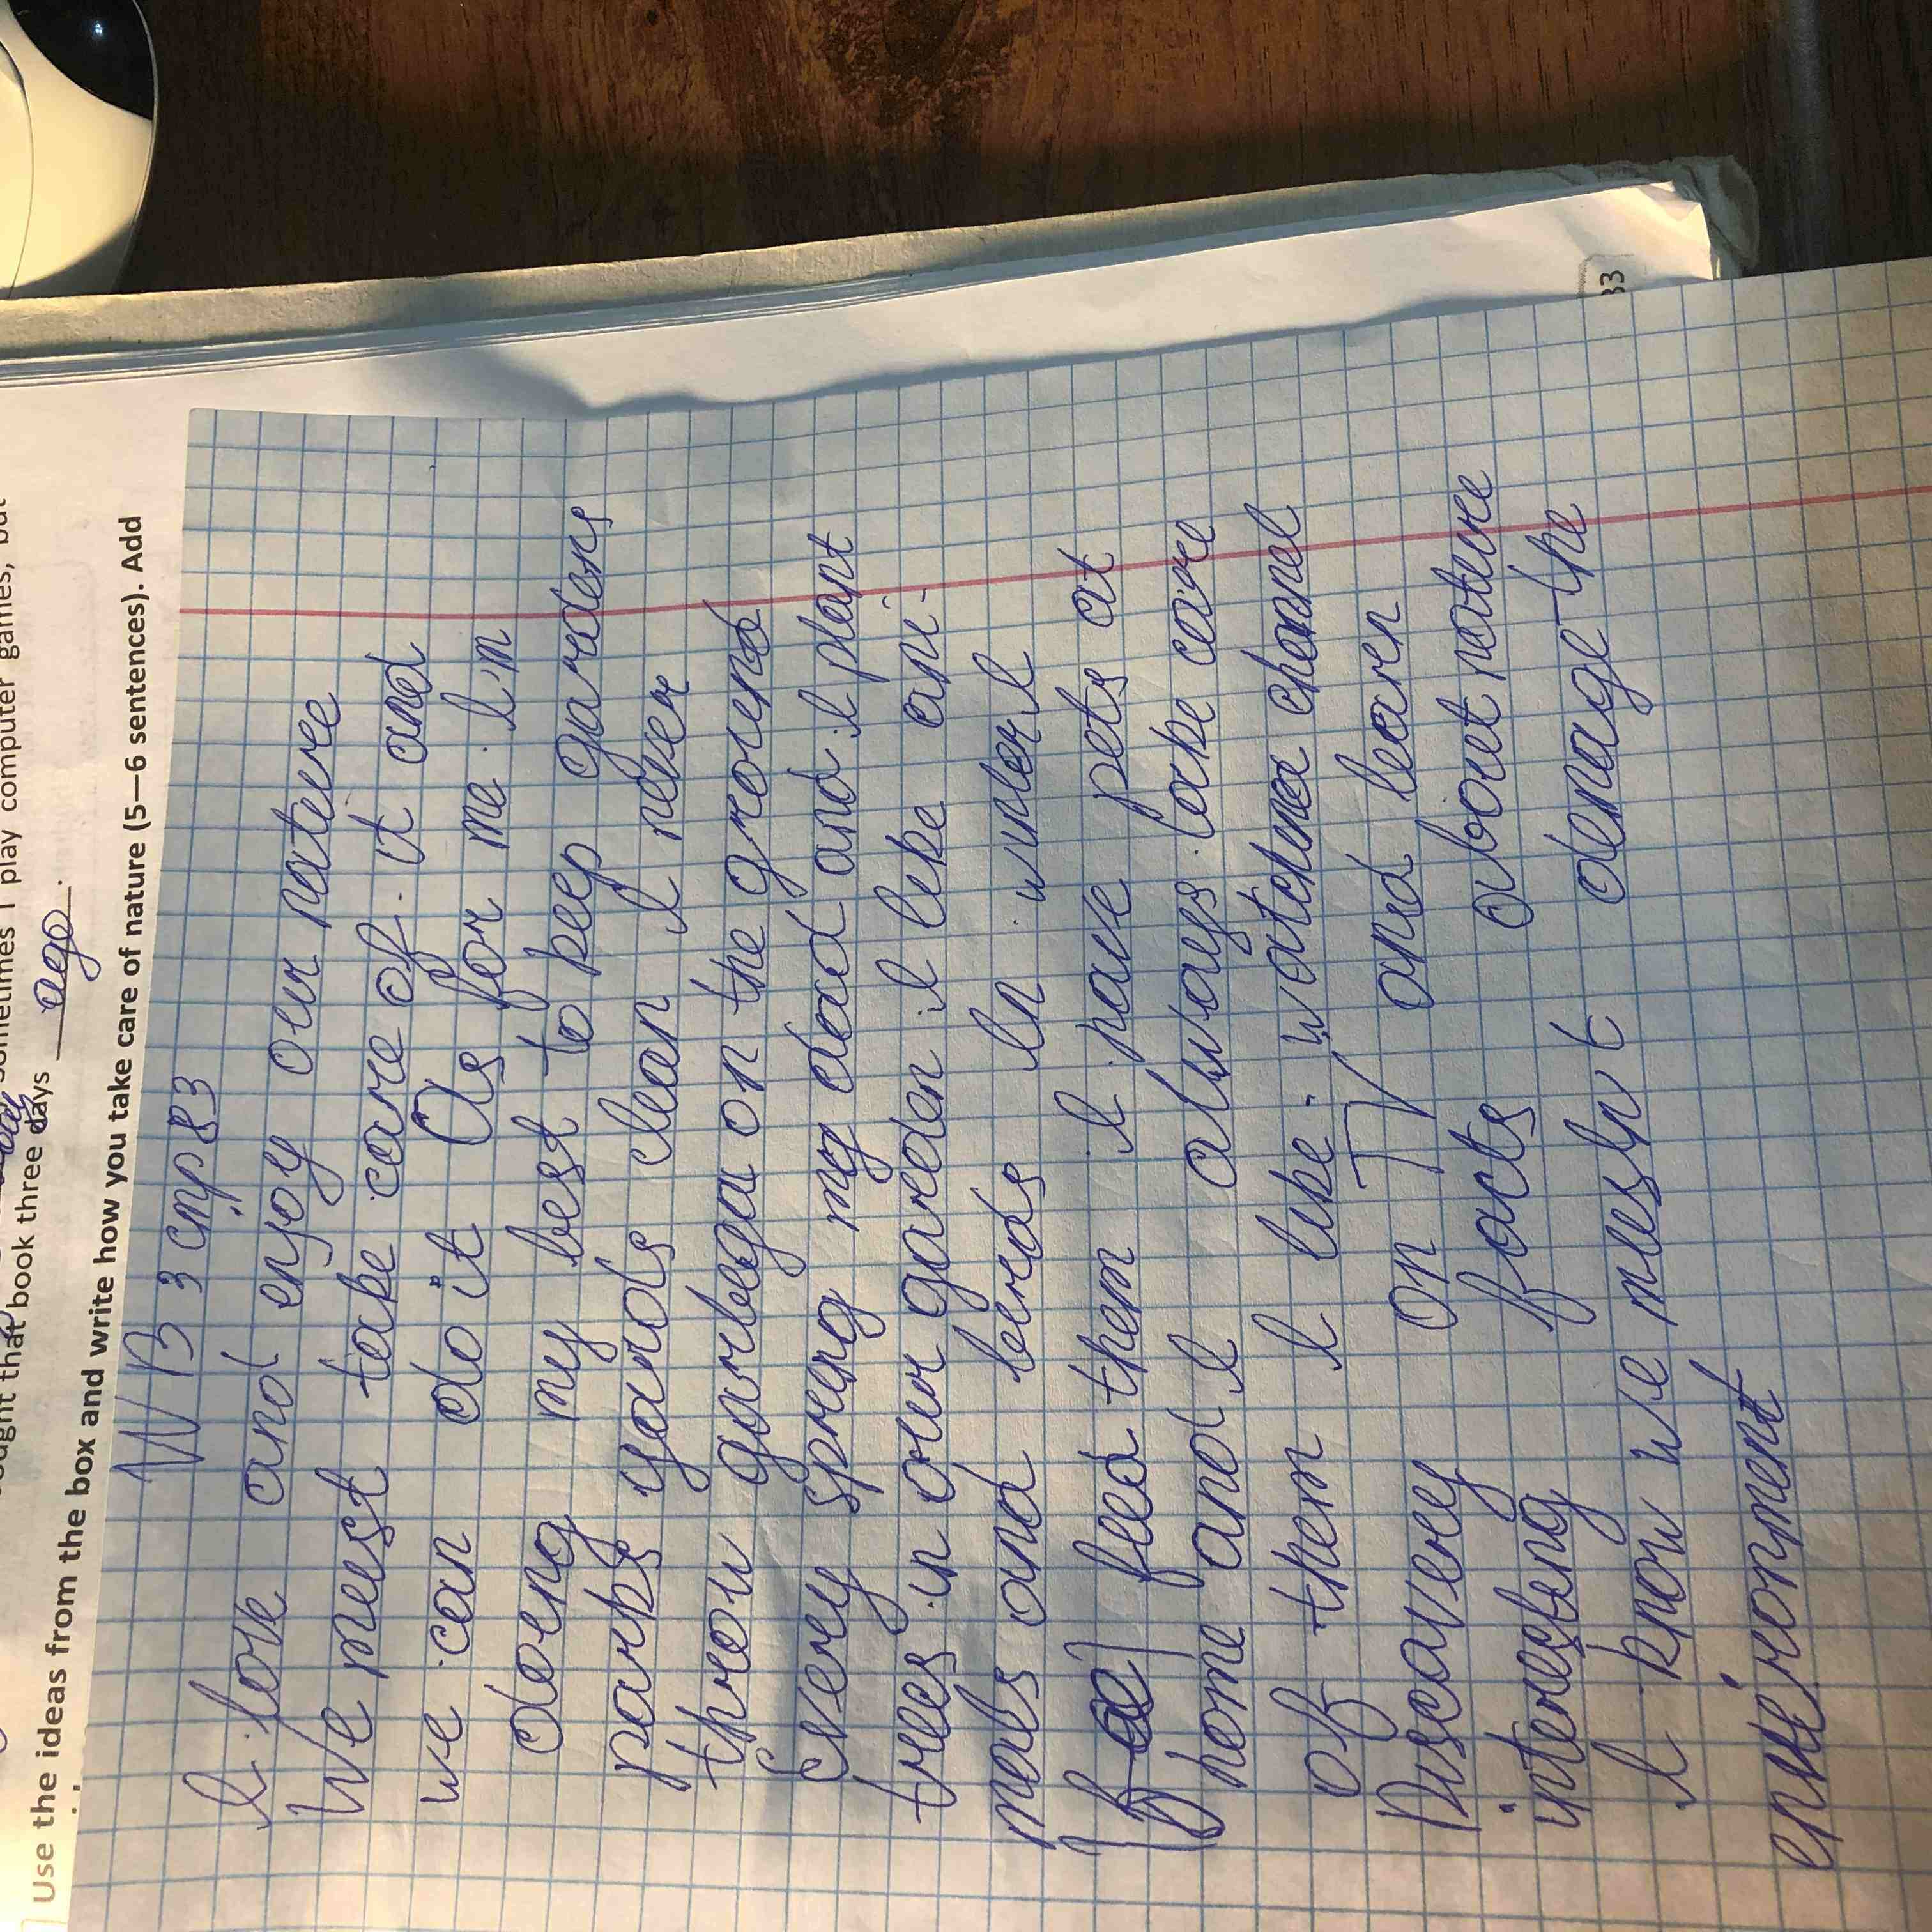 ought that book three days ago.
Use the ideas from the box and write how you take care of nature (5—6 sentences). Add
WB 3 стр 83
I love and enjoy our nature
We must take care of it and
we can do it As for me I'm
doing my best to keep gardens
parks yards clean I never
throw garbega on the ground
Every spring my dad and I plant
trees in our garden I like ani-
mals and birds In winter I
feed them I have pets at
home and I always take care
of them I like watch channel
Discavery on TV and learn
interesting facts about nature
I know we musn't demage the
environment
33